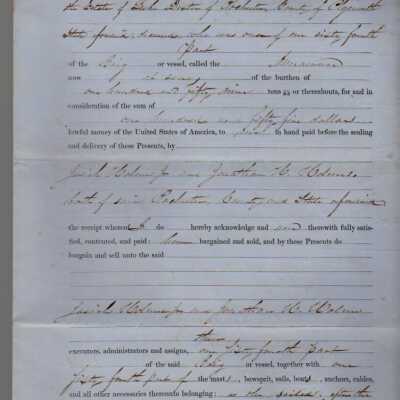 the Estate of                of Rochester, County of Plymouth
State aforesaid, deceased who was owner of one sixty fourth
part
of the Brig or vessel, called the
now at sea of the burthen of
one hundred and fifty nine tons or thereabouts, for and in
consideration of the sum of
one hundred and fifty five dollars
lawful money of the United States of America, to in hand paid before the sealing
and delivery of these Presents, by
Josiah Holmes Jr and Jonathan H. Holmes
both of said Rochester, County and State aforesaid
the receipt whereof I do hereby acknowledge and therewith fully satis-
fied, contented, and paid: have bargained and sold, and by these Presents do
bargain and sell unto the said
Josiah Holmes Jr and Jonathan H. Holmes
their
executors, administrators and assigns, one sixty fourth part
of the said Brig or vessel, together with one
sixty fourth part of the mast , bowsprit, sails, boats , anchors, cables,
and all other necessaries thereunto belonging; as she sailed, after the